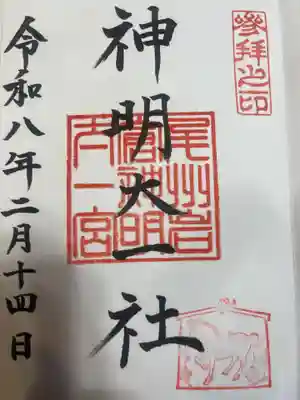 參拜之印
神明大一社
尾州岩
倉神明
大一宮
令和八年二月十四日